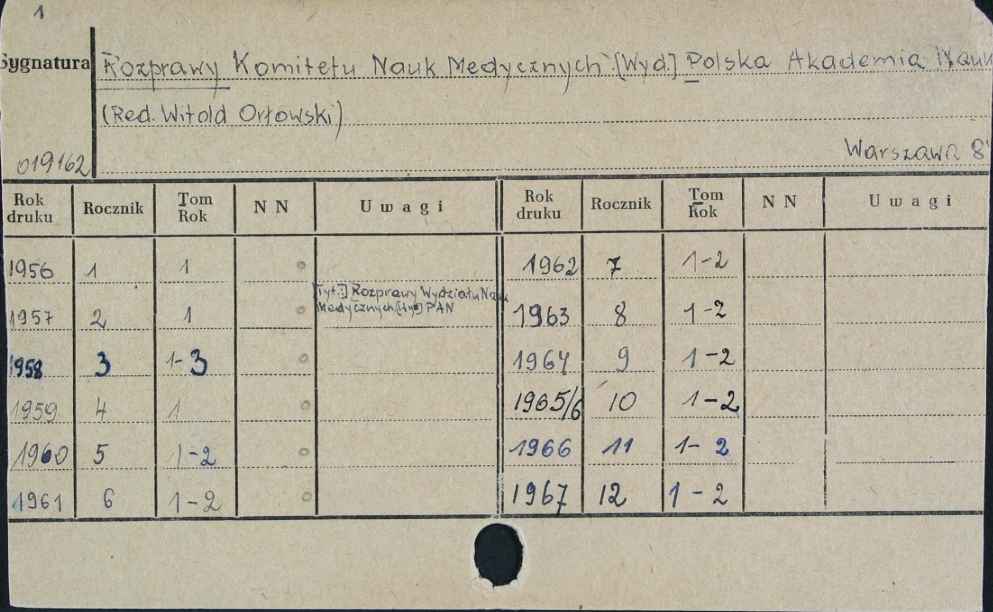 1
Sygnatura Rozprawy Komitetu Nauk Medycznych. [Wyd.] Polska Akademia Nauk
(Red. Witold Orłowski)
019162 Warszawa 8°
Rok druku Rocznik Tom Rok NN Uwagi Rok druku Rocznik Tom Rok NN Uwagi
1956 1 1 1962 7 1-2
[Tyt.:] Rozprawy Wydziału Nauk
Medycznych PAN
1957 2 1 1963 8 1-2
1958 3 1-3 1964 9 1-2
1959 4 1 1965/6 10 1-2
1960 5 1-2 1966 11 1-2
1961 6 1-2 1967 12 1-2